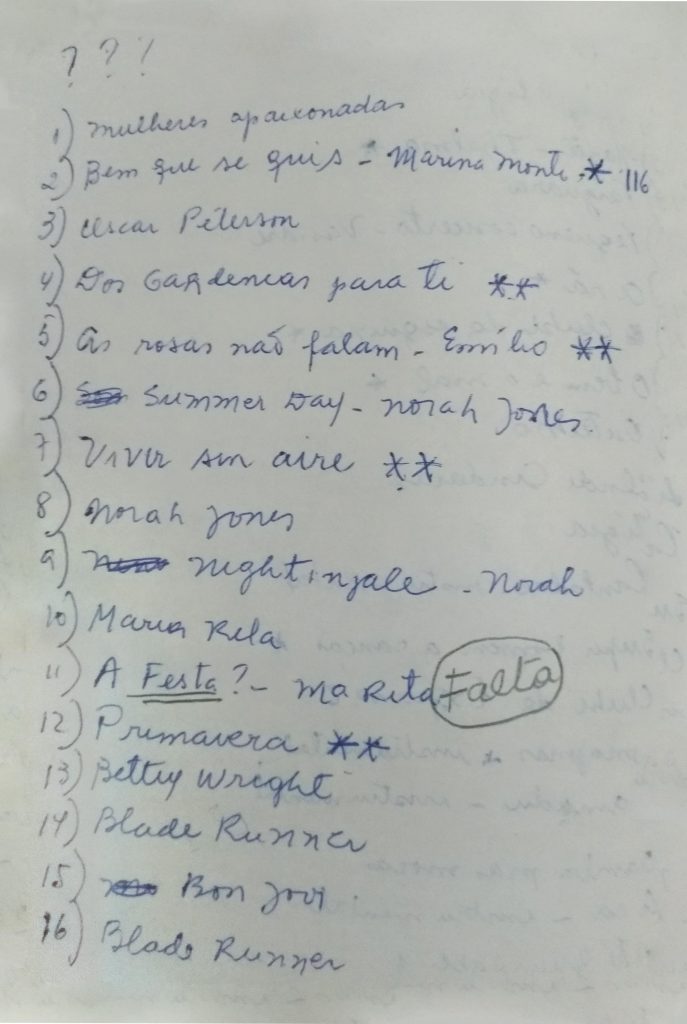 ? ? ?
1) mulheres apaixonadas
2) Bem que se quis - Marina Monte * 116
3) Oscar Péterson
4) Dos Gardenias para ti **
5) As rosas não falam - Emílio **
6) Summer Day - Norah Jones
7) Vivir sin aire **
8) Norah Jones
9) Nightingale - Norah
10) Maria Rita
11) A Festa? - Ma Rita Falta
12) Primavera **
13) Bettty Wright
14) Blade Runner
15) Bon Jovi
16) Blade Runner